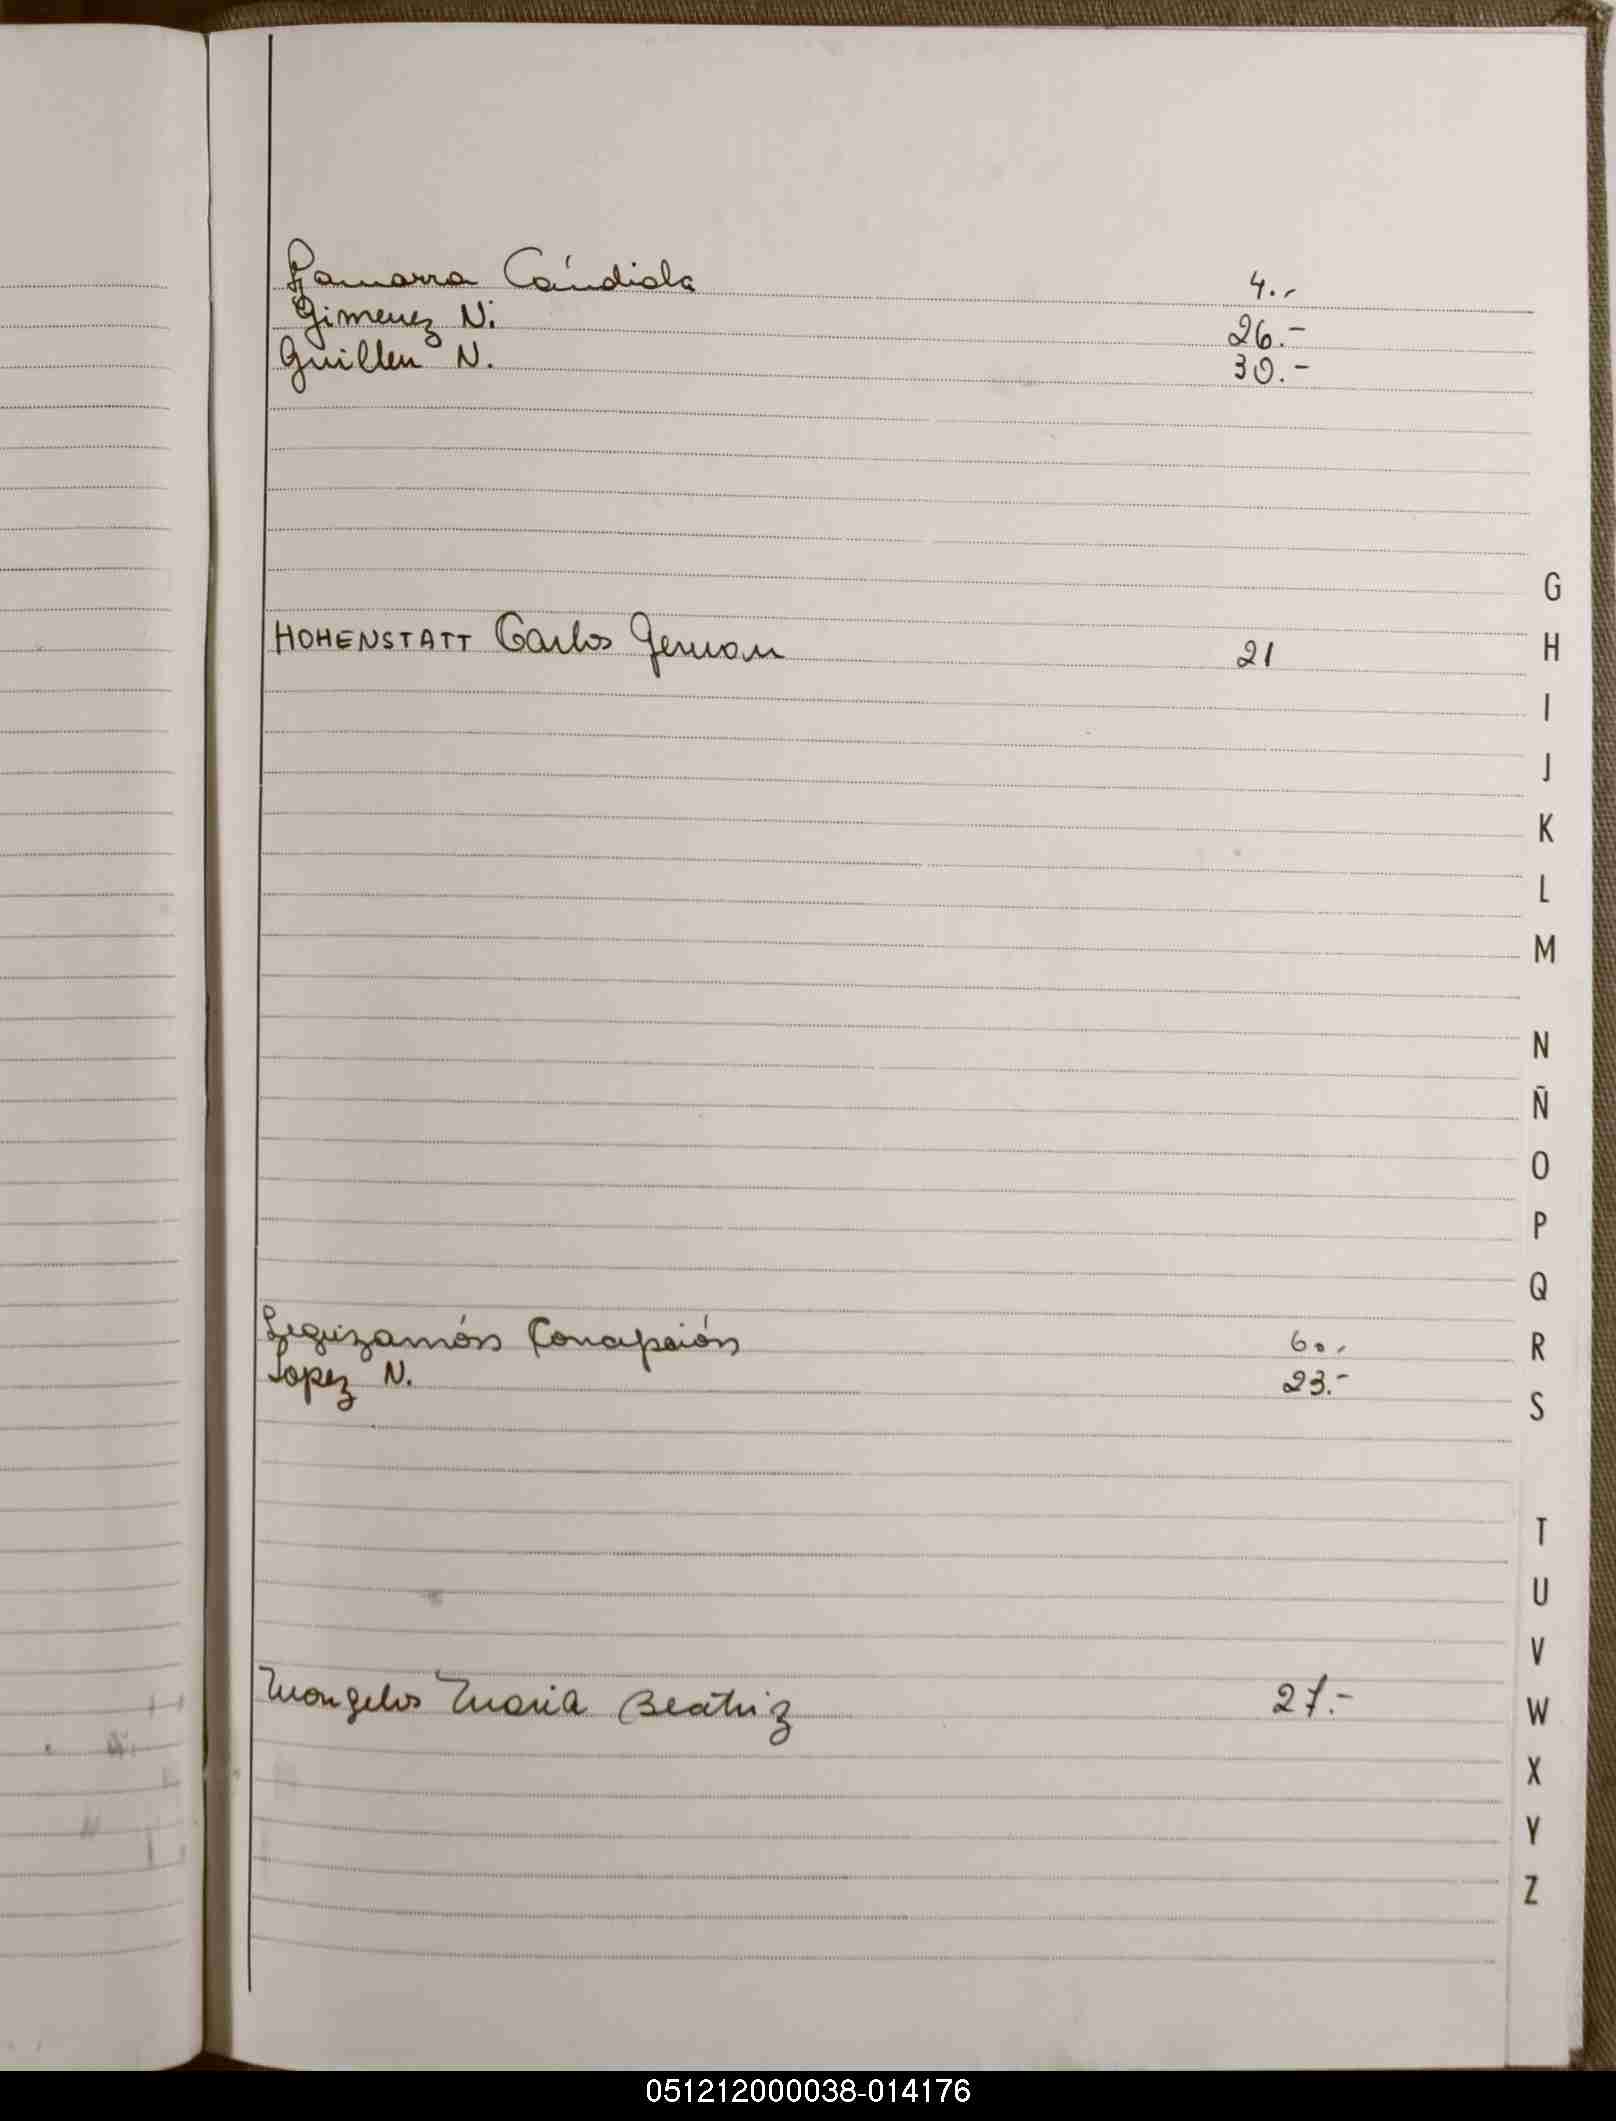 Gamarra Cándida 4.-
Gimenez N. 26.-
Guillen N. 30.-
G
HOHENSTATT Carlos German 21
H
I
J
K
L
M
N
Ñ
O
P
Q
Leguizamón Concepción 6.-
R
Lopez N. 23.-
S
T
U
V
Mongelos Maria Beatriz 27.-
W
X
Y
Z
051212000038-014176